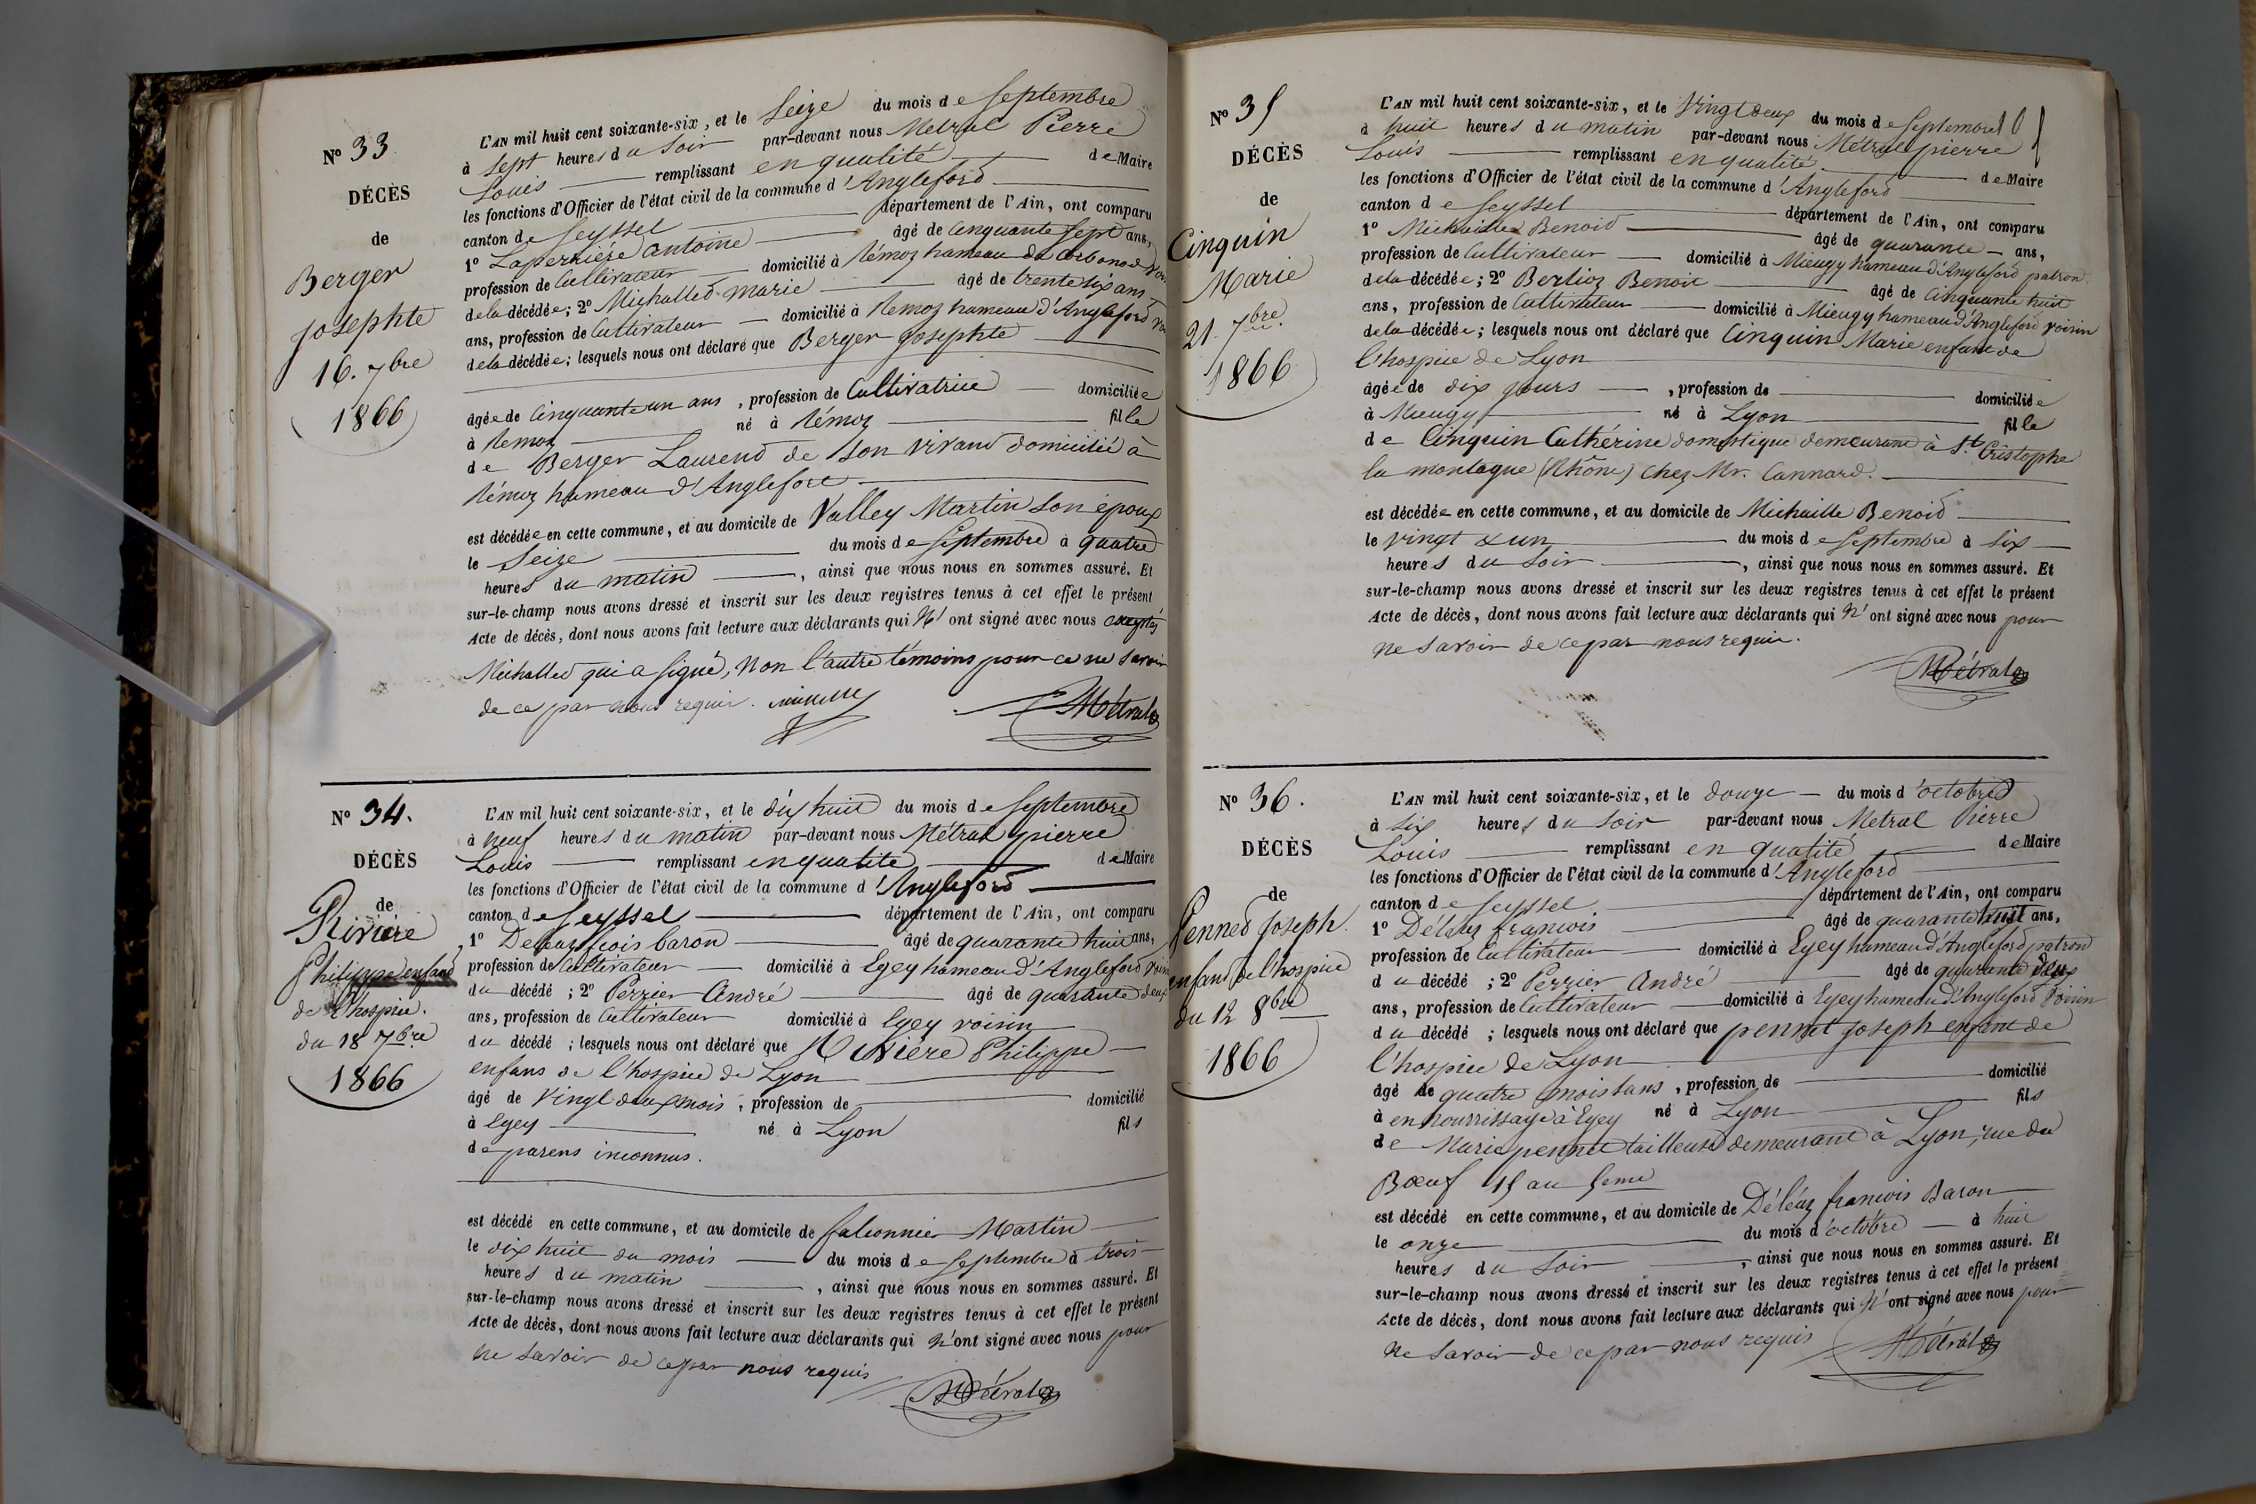 N° 33
DÉCÈS
de
Berger
Josephte
16. 7bre
1866
L'AN mil huit cent soixante-six, et le Seize du mois de Septembre
à Sept heures du Soir par-devant nous Métral Pierre
Louis remplissant en qualité de Maire
les fonctions d'Officier de l'état civil de la commune d'Angleford
canton de Seyssel département de l'Ain, ont comparu
1° Laperrière antoine âgé de Cinquante Sept ans,
profession de Cultivateur domicilié à Rémoz hameau de Corbonod
de la décédée; 2° Michalled marie âgé de trente six ans
ans, profession de Cultivateur domicilié à Remoz hameau d'Angleford
de la décédée; lesquels nous ont déclaré que Berger Josephte
âgée de Cinquante un ans, profession de Cultivatrice domiciliée
à Remoz né à Rémoz fille
de Berger Laurend de Son vivand domicilié à
Rémoz hameau d'Anglefort
est décédée en cette commune, et au domicile de Valley Martin Son époux
le Seize du mois de Septembre à quatre
heures du matin, ainsi que nous nous en sommes assuré. Et
sur-le-champ nous avons dressé et inscrit sur les deux registres tenus à cet effet le présent
Acte de décès, dont nous avons fait lecture aux déclarants qui N' ont signé avec nous exeptés
Michalled qui a Signé, Non l'autre témoins pour ce ne Savoir
de ce par nous requir.
Métral
N° 34.
DÉCÈS
de
Riviére
Philippe enfand
de l'hospice.
du 18 7bre
1866
L'AN mil huit cent soixante-six, et le dix huit du mois de Septembre
à neuf heures du matin par-devant nous Métral pierre
Louis remplissant en qualité de Maire
les fonctions d'Officier de l'état civil de la commune d'Angleford
canton de Seyssel département de l'Ain, ont comparu
1° Deléaz fçois baron âgé de quarante huit ans,
profession de Cultivateur domicilié à Eyey hameau d'Angleford
du décédé; 2° Perrier André âgé de quarante deux
ans, profession de Cultivateur domicilié à Eyey voisin
du décédé; lesquels nous ont déclaré que Rivière Philippe
enfans de l'hospice de Lyon
âgé de Vingt deux mois, profession de domicilié
à Eyey né à Lyon fils
de parens inconnus.
est décédé en cette commune, et au domicile de falconnier Martin
le dix huit du mois du mois de Septembre à trois
heures du matin, ainsi que nous nous en sommes assuré. Et
sur-le-champ nous avons dressé et inscrit sur les deux registres tenus à cet effet le présent
Acte de décès, dont nous avons fait lecture aux déclarants qui N'ont signé avec nous pour
ne Savoir de ce par nous requis
Métral
N° 35
DÉCÈS
de
Cinquin
Marie
21. 7bre.
1866
L'AN mil huit cent soixante-six, et le Vingt deux du mois de Septembre
à huit heures du matin par-devant nous Métral pierre
Louis remplissant en qualité de Maire
les fonctions d'Officier de l'état civil de la commune d'Angleford
canton de Seyssel département de l'Ain, ont comparu
1° Michaille Benoid âgé de quarante ans,
profession de Cultivateur domicilié à Mieugy hameau d'Angleford patron
de la décédée; 2° Berlioz Benoit âgé de Cinquante huit
ans, profession de Cultivateur domicilié à Mieugy hameau d'Angleford voisin
de la décédée; lesquels nous ont déclaré que Cinquin Marie enfant de
l'hospice de Lyon
âgée de dix jours, profession de domiciliée
à Mieugy né à Lyon fille
de Cinquin Cathérine domestique demeurant à St. Cristophe
la montagne (Rhône) chez Mr. Cannard.
est décédée en cette commune, et au domicile de Michaille Benoid
le vingt & un du mois de Septembre à Six
heures du Soir, ainsi que nous nous en sommes assuré. Et
sur-le-champ nous avons dressé et inscrit sur les deux registres tenus à cet effet le présent
Acte de décès, dont nous avons fait lecture aux déclarants qui N' ont signé avec nous pour
ne Savoir de ce par nous requir.
Métral
N° 36.
DÉCÈS
de
Penned Joseph.
enfand de l'hospice
du 12 8bre
1866
L'AN mil huit cent soixante-six, et le douze du mois d'octobre
à Six heures du Soir par-devant nous Métral Pierre
Louis remplissant en qualité de Maire
les fonctions d'Officier de l'état civil de la commune d'Angleford
canton de Seyssel département de l'Ain, ont comparu
1° Déléaz francois âgé de quarante huit ans,
profession de Cultivateur domicilié à Eyey hameau d'Angleford patron
du décédé; 2° Perrier André âgé de quarante deux
ans, profession de Cultivateur domicilié à Eyey hameau d'Angleford Voisin
du décédé; lesquels nous ont déclaré que pennet Joseph enfant de
l'hospice de Lyon
âgé de quatre mois, profession de domicilié
à en nourrissage à Eyey né à Lyon fils
de Marie pennet tailleuse demeurant à Lyon, rue du
Bœuf 15 au 5eme
est décédé en cette commune, et au domicile de Déléaz francois Baron
le onze du mois d'octobre à huit
heures du Soir, ainsi que nous nous en sommes assuré. Et
sur-le-champ nous avons dressé et inscrit sur les deux registres tenus à cet effet le présent
Acte de décès, dont nous avons fait lecture aux déclarants qui N' ont signé avec nous pour
ne Savoir de ce par nous requis
Métral